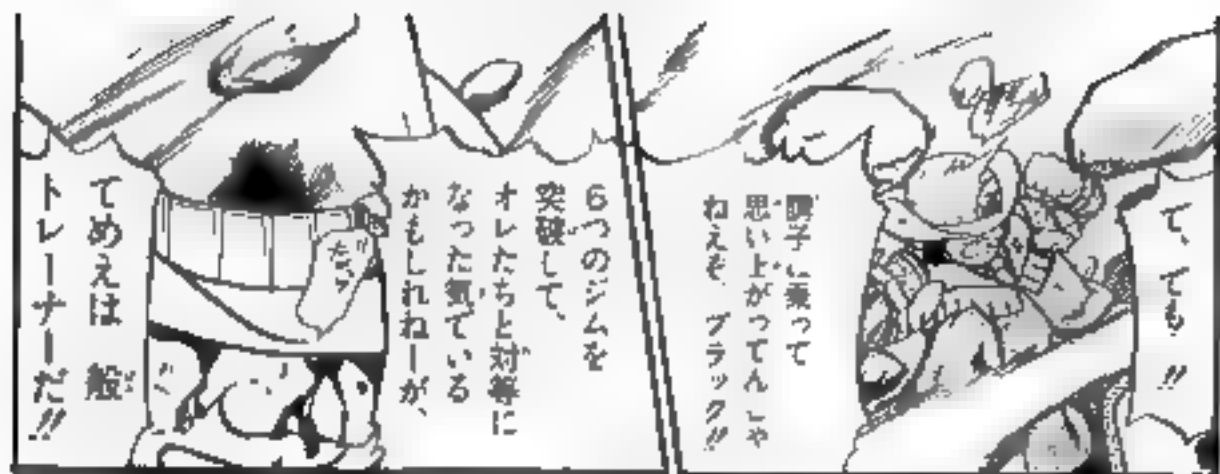 て、でも!!
調子に乗って
思い上がってんじゃ
ねえぞ、ブラック!!
6つのジムを
突破して、
オレたちと対等に
なった気でいる
かもしれねーが、
てめえは一般
トレーナーだ!!